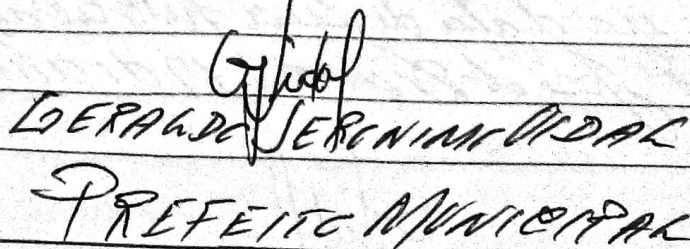 GJVidal
GERALDO JERONIMO VIDAL
PREFEITO MUNICIPAL